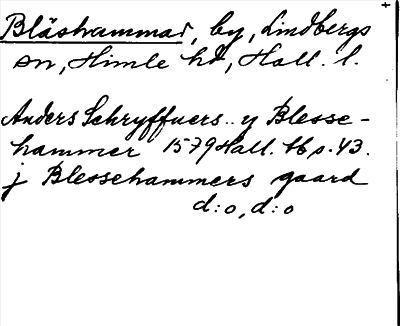 Bläshammar, by, Lindbergs
sn, Himle hd, Hall. l.
Anders Schryffuers .. y Blesse-
hammer 1579 Hall. Hb s. 43.
j Blessehammers gaard
d:o, d:o